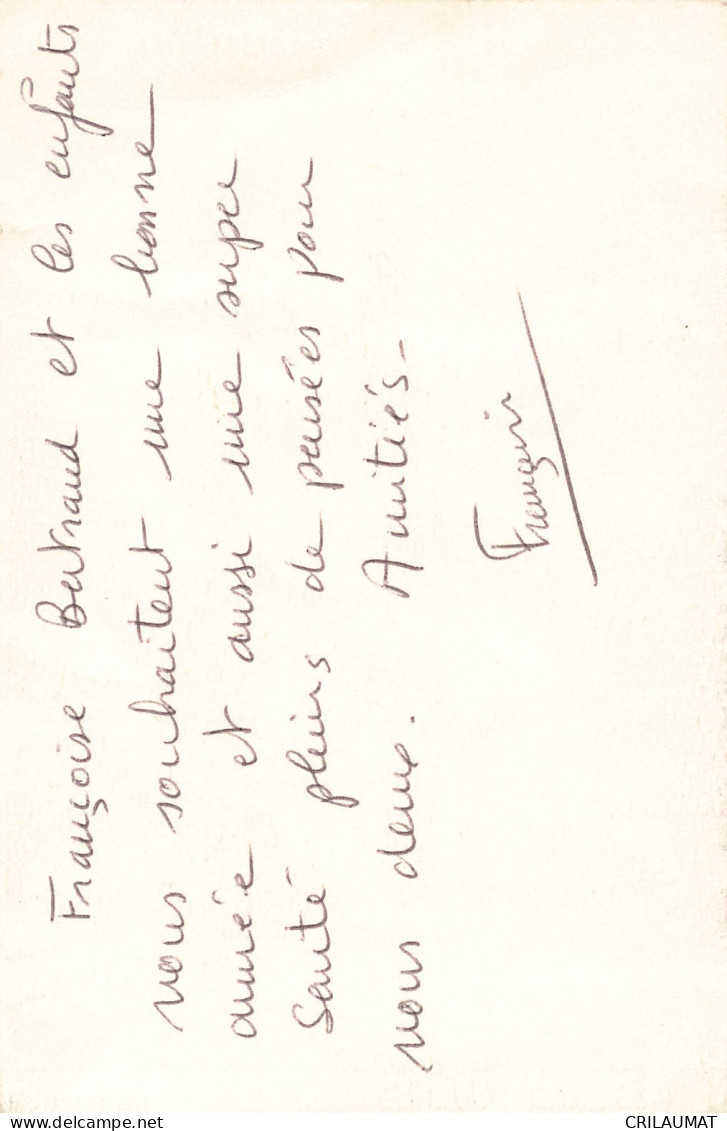 Françoise Bertrand et les enfants
vous souhaitent une bonne
année et aussi une super
Santé pleins de pensées pour
vous deux. Amitiés-
Françoise
delcampe.net
CRILAUMAT